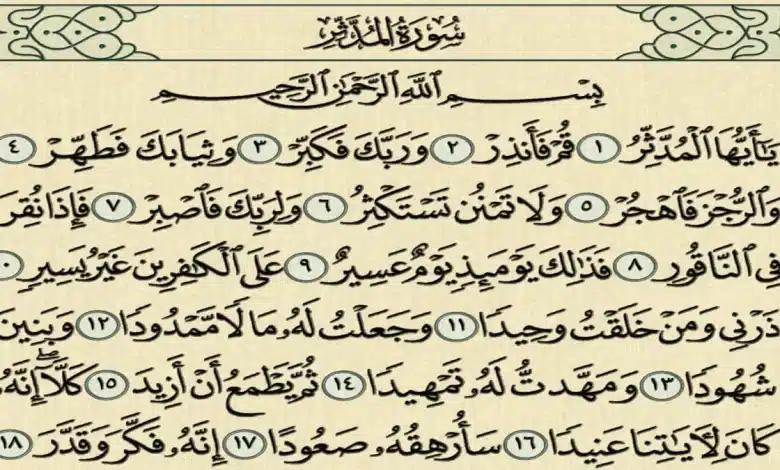 سُورَةُ المُدَّثِّرِ
بِسْمِ ٱللَّهِ ٱلرَّحْمَٰنِ ٱلرَّحِيمِ
يَٰٓأَيُّهَا ٱلْمُدَّثِّرُ ١ قُمْ فَأَنذِرْ ٢ وَرَبَّكَ فَكَبِّرْ ٣ وَثِيَابَكَ فَطَهِّرْ ٤
وَٱلرُّجْزَ فَٱهْجُرْ ٥ وَلَا تَمْنُن تَسْتَكْثِرُ ٦ وَلِرَبِّكَ فَٱصْبِرْ ٧ فَإِذَا نُقِرَ
فِي ٱلنَّاقُورِ ٨ فَذَٰلِكَ يَوْمَئِذٍ يَوْمٌ عَسِيرٌ ٩ عَلَى ٱلْكَٰفِرِينَ غَيْرُ يَسِيرٍ
ذَرْنِي وَمَنْ خَلَقْتُ وَحِيدًا ١١ وَجَعَلْتُ لَهُۥ مَالًا مَّمْدُودًا ١٢ وَبَنِينَ
شُهُودًا ١٣ وَمَهَّدتُّ لَهُۥ تَمْهِيدًا ١٤ ثُمَّ يَطْمَعُ أَنْ أَزِيدَ ١٥ كَلَّآ ۖ إِنَّهُۥ
كَانَ لِأٓيَٰتِنَا عَنِيدًا ١٦ سَأُرْهِقُهُۥ صَعُودًا ١٧ إِنَّهُۥ فَكَّرَ وَقَدَّرَ ١٨